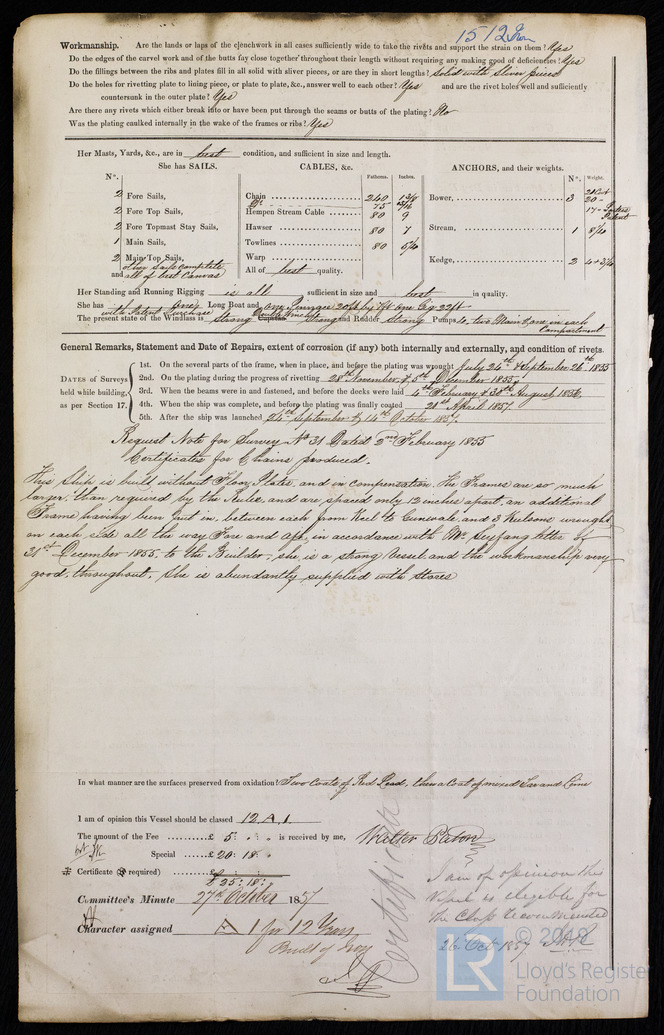 1512 Iron
Workmanship. Are the lands or laps of the clenchwork in all cases sufficiently wide to take the rivets and support the strain on them? Yes
Do the edges of the carvel work and of the butts fay close together throughout their length without requiring any making good of deficiencies? Yes
Do the fillings between the ribs and plates fill in all solid with sliver pieces, or are they in short lengths? Solid with Sliver pieces
Do the holes for rivetting plate to lining piece, or plate to plate, &c., answer well to each other? Yes and are the rivet holes well and sufficiently
countersunk in the outer plate? Yes
Are there any rivets which either break into or have been put through the seams or butts of the plating? No
Was the plating caulked internally in the wake of the frames or ribs? Yes
Her Masts, Yards, &c., are in best condition, and sufficient in size and length.
She has SAILS. CABLES, &c. ANCHORS, and their weights.
No. Fathoms. Inches. No. Weight.
2 Fore Sails, Chain 240 1 3/8 Bower, 3 21 Cwt
Do. 75 15/16 20 -
2 Fore Top Sails, Hempen Stream Cable 80 9 17 - Porters Patent
2 Fore Topmast Stay Sails, Hawser 80 7 Stream, 1 8 3/10
1 Main Sails, Towlines 80 5 1/2
2 Main Top Sails, Warp Kedge, 2 4 + 3/10
other Sails complete
and all of best Canvas All of best quality.
Her Standing and Running Rigging is all sufficient in size and best in quality.
She has one Long Boat and one Pinnace 20ft by 7ft one Gig 22ft
with Patent Purchase
The present state of the Windlass is Strong Capstan Strong and Rudder Strong Pumps 4, two Main & one in each Compartment
General Remarks, Statement and Date of Repairs, extent of corrosion (if any) both internally and externally, and condition of rivets.
DATES of Surveys held while building, as per Section 17.
1st. On the several parts of the frame, when in place, and before the plating was wrought July 24th & September 26th 1855
2nd. On the plating during the progress of rivetting 28th November & 5th December 1855
3rd. When the beams were in and fastened, and before the decks were laid 4th February & 30th August 1856
4th. When the ship was complete, and before the plating was finally coated 21st April 1857.
5th. After the ship was launched 24th September & 14th October 1857.
Request Note for Survey No 31 Dated 2nd February 1855
Certificates for Chains produced.
This Ship is built without Floor Plates, and in Compensation the Frames are so much
larger, than required by the Rule, and are spaced only 12 inches apart, an additional
Frame having been put in, between each from Keel to Gunwale, and 3 Keelsons wrought
on each side all the way Fore and Aft, in accordance with Mr. Seyfang letter of
21st December 1855, to the Builder, she is a strong Vessel and the workmanship very
good, throughout. She is abundantly supplied with Stores
In what manner are the surfaces preserved from oxidation? Two Coats of Red Lead, then a Coat of mixed Tar and Lime
I am of opinion this Vessel should be classed 12 A.1.
The amount of the Fee £ 5 : " : " is received by me, Walter Paton
Special £ 20 : 18 :
Certificate (if required) £
£ 25 : 18 :
Committee's Minute 27th October 1857
Character assigned A 1 for 12 Years
Built of Iron
Certificate
I am of opinion this
Vessel is eligible for
the Class recommended
26 Oct 1857
LR © 2019
Lloyd's Register
Foundation